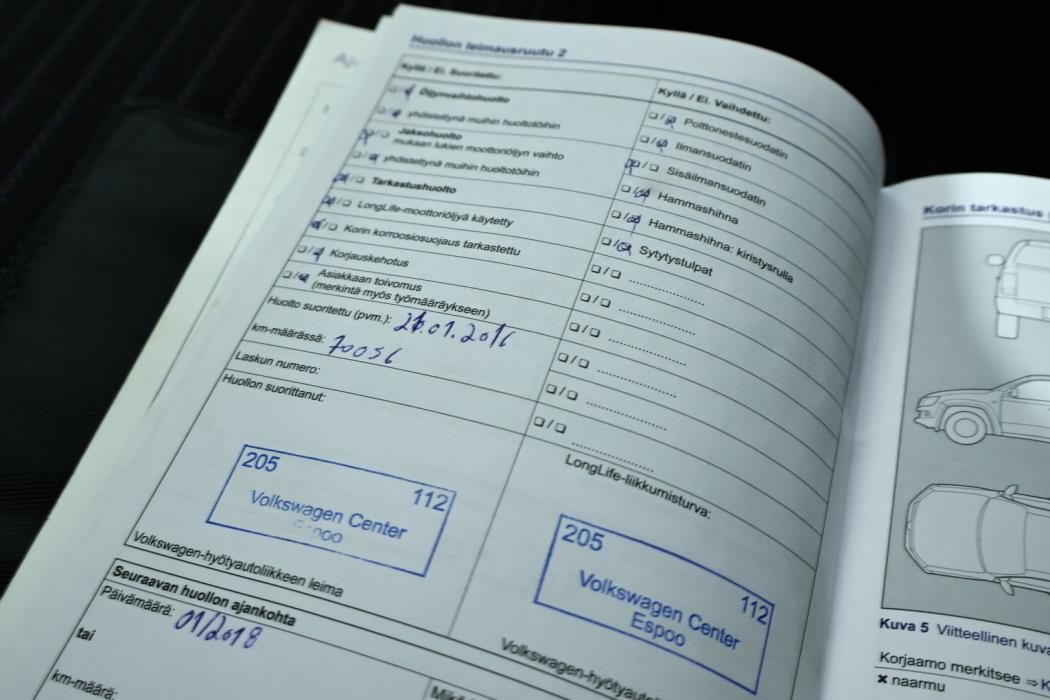 Huollon leimausruutu 2
Kyllä / Ei. Suoritettu:
Öljynvaihtohuolto
yhdistettynä muihin huoltotöihin
Jaksohuolto
mukaan lukien moottoriöljyn vaihto
yhdistettynä muihin huoltotöihin
Tarkastushuolto
LongLife-moottoriöljyä käytetty
Korin korroosiosuojaus tarkastettu
Korjauskehotus
Asiakkaan toivomus
(merkintä myös työmääräykseen)
Huolto suoritettu (pvm.): 21.01.2016
km-määrässä: 70056
Laskun numero:
Huollon suorittanut:
205
112
Volkswagen Center
Espoo
Volkswagen-hyötyautoliikkeen leima
Seuraavan huollon ajankohta
Päivämäärä: 01/2018
tai
km-määrä:
Kyllä / Ei. Vaihdettu:
Polttonestesuodatin
Ilmansuodatin
Sisäilmansuodatin
Hammashihna
Hammashihna: kiristysrulla
Sytytystulpat
LongLife-liikkumisturva:
205
112
Volkswagen Center
Espoo
Korin tarkastus
Kuva 5 Viitteellinen
Korjaamo merkitsee ⇒
✖ naarmu